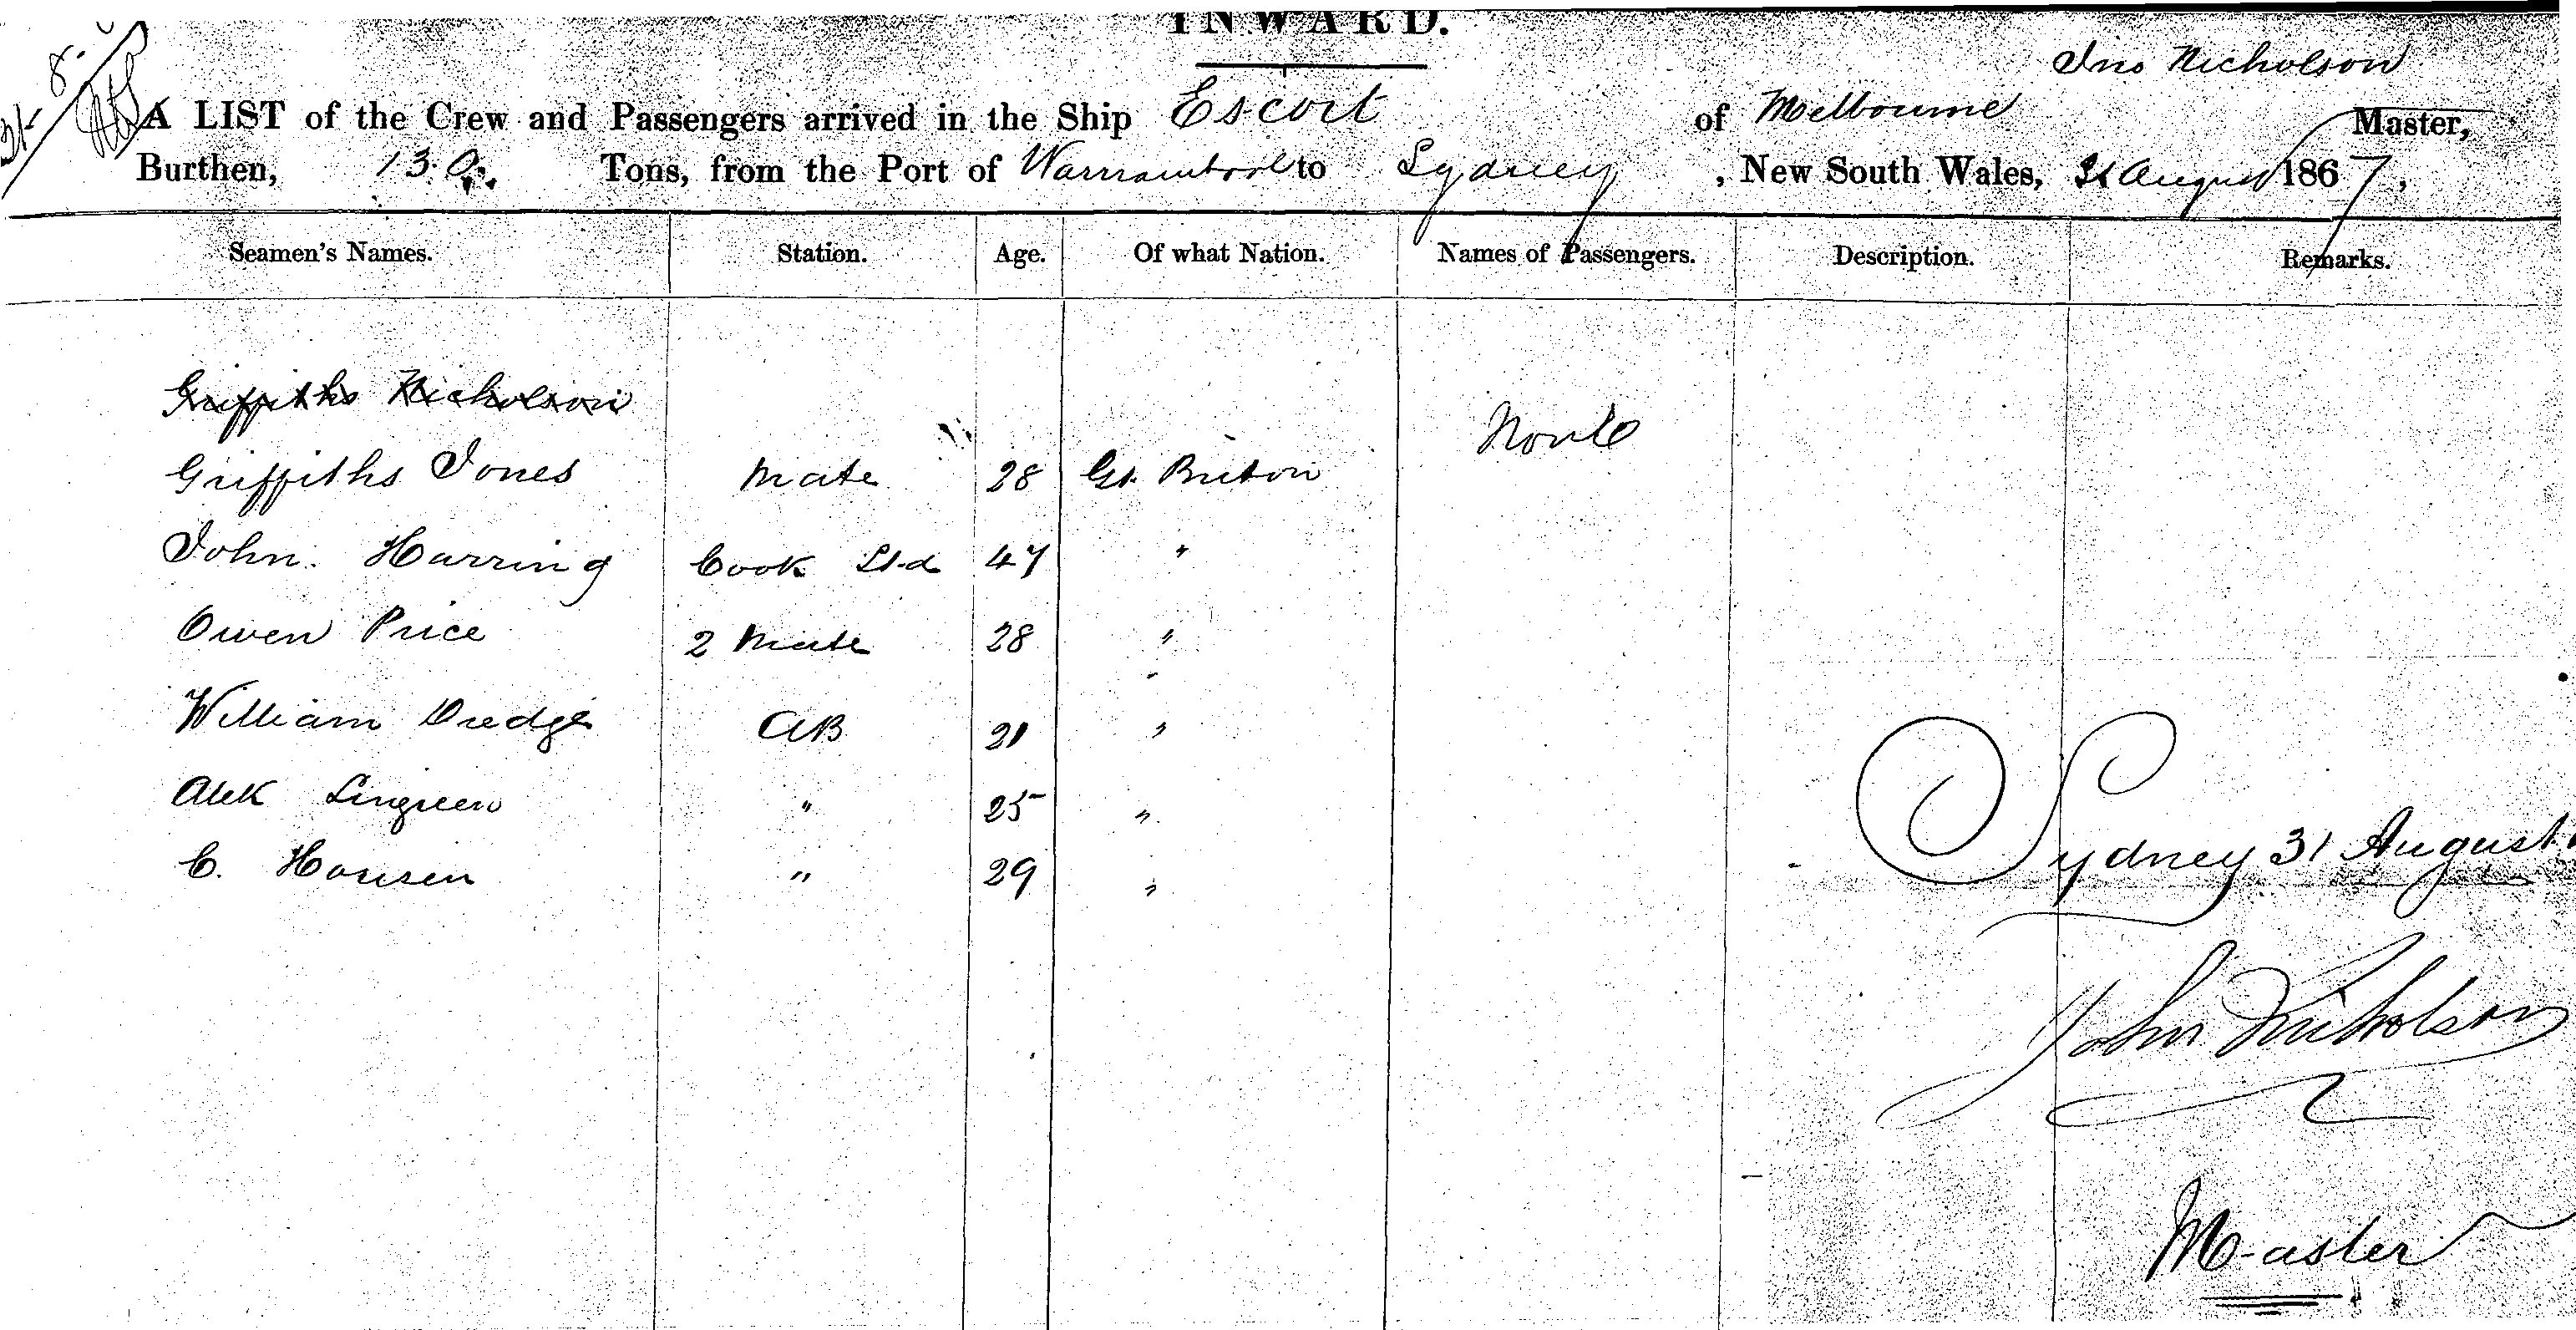 INWARD.
Jno Nicholson
A LIST of the Crew and Passengers arrived in the Ship Escort of Melbourne Master,
Burthen, 130 Tons, from the Port of Warrnambool to Sydney, New South Wales, 31 August 1867,
Seamen's Names. Station. Age. Of what Nation. Names of Passengers. Description. Remarks.
Griffiths Nicholson
None
Griffiths Jones Mate 28 Gt. Briton
John. Harring Cook St.d 47 "
Owen Price 2 Mate 28 "
William Dredge AB 21 "
Alek Lingreen " 25 "
C. Hansen " 29 "
Sydney 31 August
John Nicholson
Master